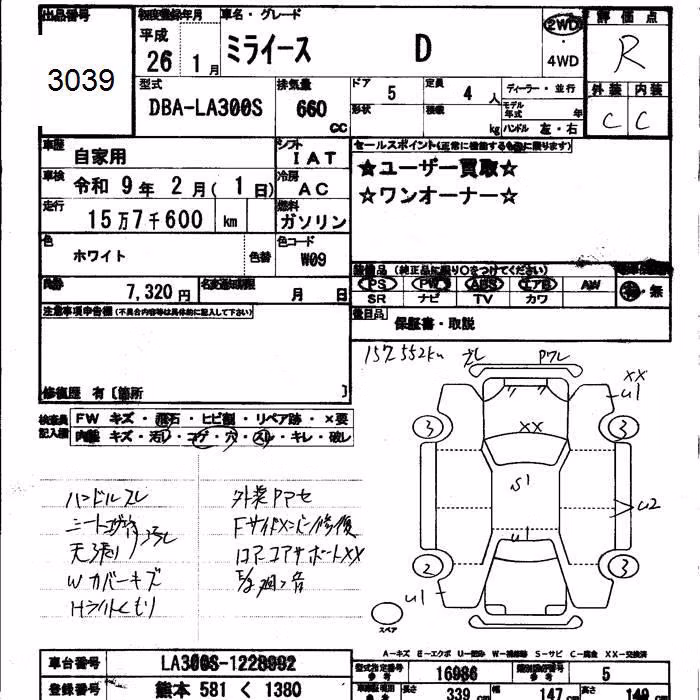 出品番号
3039
初度登録年月
平成
26 1月
車名・グレード
ミライース D
2WD
4WD
評価点
R
外装 内装
C C
型式
DBA-LA300S
排気量
660
CC
ドア
5
形状
定員
4 人
積載
kg
ディーラー・並行
モデル
年式 年
ハンドル 左・右
車歴
自家用
シフト
IAT
セールスポイント(正常に機能する物に限ります)
☆ユーザー買取☆
☆ワンオーナー☆
車検
令和 9年 2月( 1日)
冷房
AC
走行
15万7千600 km
燃料
ガソリン
色
ホワイト
色替
色コード
W09
装備品 (純正品に限り○をつけてください)
PS PW ABS エアB AW
SR ナビ TV カワ
有・無
7,320円
月 日
後日品
保証書・取説
注意事項申告欄(不具合内容等は具体的に記入して下さい)
修復歴 有〔箇所 〕
157,552km
検査員
記入欄
FW キズ・飛石・ヒビ割・リペア跡・×要
内装 キズ・汚レ・コゲ・穴・スレ・キレ・破レ
XX
U1
3 3
XX
S1
U2
U1
2 3
U1
スペア
ハンドルスレ
Wカバーキズ
Hライトくもり
外装アセ
コアサポートXX
A-キズ E-エクボ U-凹み W-補修跡 S-サビ C-腐食 XX-交換済
車台番号
LA300S-1228092
登録番号
熊本 581 く 1380
型式指定番号
参考
16986
類別区分番号
参考
5
長さ
339 cm
幅
147 cm
高さ
149 cm